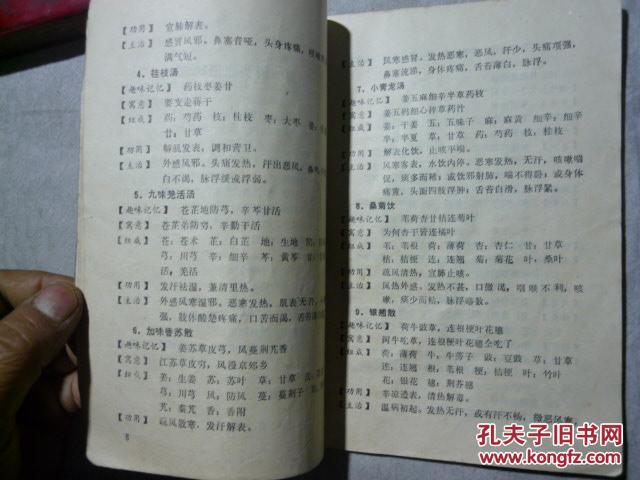 【功用】 宣肺解表。
【主治】 感冒风邪。鼻塞音哑，头身疼痛，
满气短。
4．桂枝汤
【趣味记忆】 药枝枣姜甘
【寓意】 要支走蒋干
【组成】 药：芍药 枝：桂枝 枣：大枣 姜：
甘：甘草
【功用】 解肌发表，调和营卫。
【主治】 外感风邪。头痛发热，汗出恶风，鼻
白不渴，脉浮缓或浮弱。
5．九味羌活汤
【趣味记忆】 苍芷地防芎，辛芩甘活
【寓意】 苍芷弟防穷，辛勤干活
【组成】 苍：苍术 芷：白芷 地：生地 防：
芎：川芎 辛：细辛 芩：黄芩
活：羌活
【功用】 发汗祛湿，兼清里热。
【主治】 外感风寒湿邪。恶寒发热，肌表无汗，
强，肢体酸楚疼痛，口苦而渴，舌苔
6．加味香苏散
【趣味记忆】 姜苏草皮芎，风蔓荆艽香
【寓意】 江苏草皮穷，风漫京郊乡
【组成】 姜：生姜 苏：苏叶 草：甘草
芎：川芎 风：防风 蔓：蔓荆子
艽：秦艽 香：香附
【功用】 疏风散寒，发汗解表。
8
【主治】 风寒感冒。发热恶寒，恶风，汗少，头痛项强，
鼻塞流涕，身体疼痛，舌苔薄白，脉浮。
7．小青龙汤
【趣味记忆】 姜五麻细辛半草药枝
【寓意】 姜五码细心拌草药汁
【组成】 姜：干姜 五：五味子 麻：麻黄 细辛：细
辛 半：半夏 草：甘草 药：芍药 枝：桂枝
【功用】 解表化饮，止咳平喘。
【主治】 风寒客表，水饮内停。恶寒发热，无汗，咳嗽喘
促，痰多而稀；或饮邪射肺，喘不得卧；或身体
痛重，头面四肢浮肿；舌苔白滑，脉浮紧。
8．桑菊饮
【趣味记忆】 苇荷杏甘桔连菊叶
【寓意】 为何杏干皆连橘叶
【组成】 苇：苇根 荷：薄荷 杏：杏仁 甘：甘草
桔：桔梗 连：连翘 菊：菊花 叶：桑叶
【功用】 疏风清热，宣肺止咳。
【主治】 风热外感。发热不甚，口微渴，咽喉不利，咳
嗽，痰少而粘，脉浮略数。
9．银翘散
【趣味记忆】 荷牛豉草，连根梗叶花穗
【寓意】 河牛吃草，连根梗叶花穗全吃了
【组成】 荷：薄荷 牛：牛蒡子 豉：豆豉 草：甘草
连：连翘 根：苇根 梗：桔梗 叶：竹叶
花：银花 穗：荆芥穗
【功用】 辛凉透表，清热解毒。
【主治】 温病初起。发热无汗，或有汗不畅，微恶风寒
孔夫子旧书网
www.kongfz.com